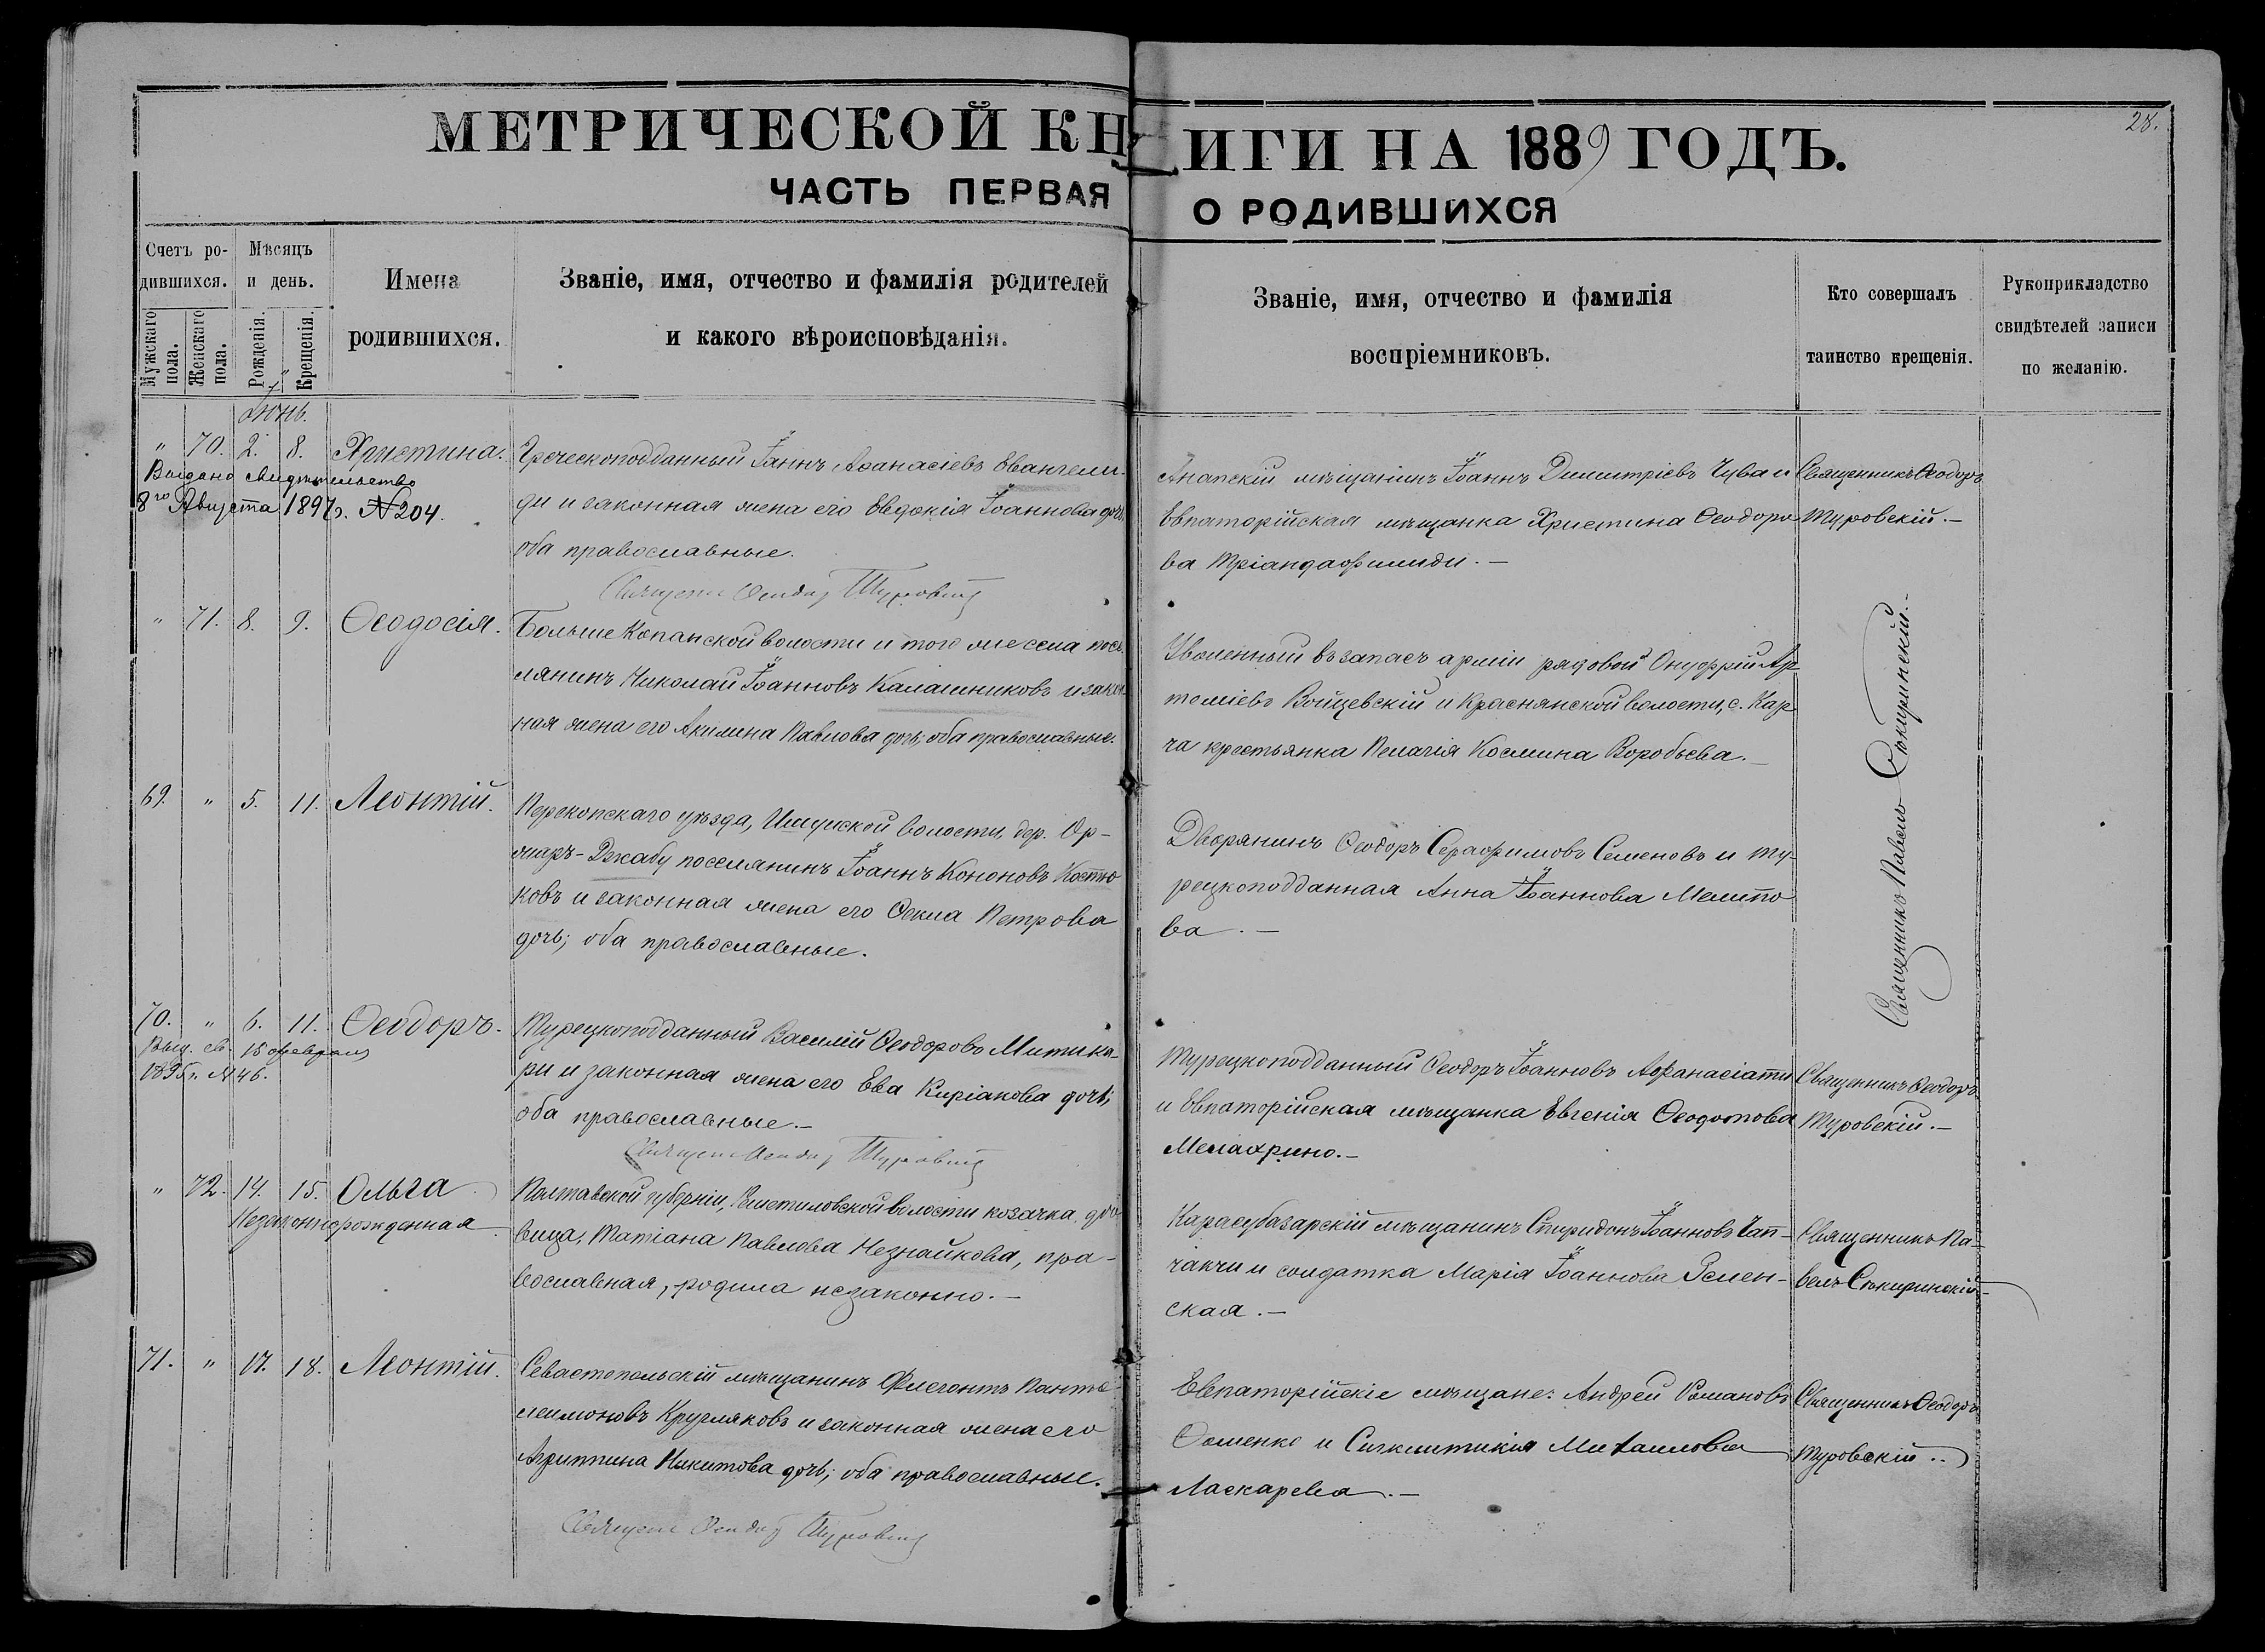 МЕТРИЧЕСКОЙ КНИГИ НА 1889 ГОДЪ.
28.
ЧАСТЬ ПЕРВАЯ О РОДИВШИХСЯ
Счетъ ро-
дившихся.
Мужскаго пола.
Женскаго пола.
Мѣсяцъ
и день.
Рожденія.
Крещенія.
Имена
родившихся.
Званіе, имя, отчество и фамилія родителей
и какого вѣроисповѣданія.
Званіе, имя, отчество и фамилія
воспріемниковъ.
Кто совершалъ
таинство крещенія.
Рукоприкладство
свидѣтелей записи
по желанію.
Іюнь.
" 70. 2. 8. Христина.
Выдано свидѣтельство
8го Августа 1897г. №204.
Греческоподданный Іоаннъ Аѳанасіевъ Евангели-
ди и законная жена его Евдокія Іоаннова дочь,
оба православные.
Священ. Ѳеодоръ Туровскій
Анапскій мѣщанинъ Іоаннъ Димитріевъ Чува и
Евпаторійская мѣщанка Христина Ѳеодоро
ва Тріандафилиди. —
Священникъ Ѳеодоръ
Туровскій. —
" 71. 8. 9. Ѳеодосія.
Больше Копанской волости и того же села посе
лянинъ Николай Іоанновъ Калашниковъ и закон-
ная жена его Акилина Павлова дочь; оба православные.
Уволенный въ запасъ арміи рядовой Онуфрій Ар
теміевъ Войцевскій и Краснянской волости, с. Кар
ча крестьянка Пелагія Космина Воробьева. —
Священникъ Павелъ Сокиринскій. —
69. " 5. 11. Леонтій.
Перекопскаго уѣзда, Ишунской волости, дер. Ор-
жаръ-Джабу поселянинъ Іоаннъ Кононовъ Костю
ковъ и законная жена его Ѳекла Петрова
дочь; оба православные.
Дворянинъ Ѳеодоръ Серафимовъ Семеновъ и ту-
рецкоподданная Анна Іоаннова Мелито
ва. —
70. " 6. 11. Ѳеодоръ.
Выд. св. 18 февраля
1895 г. №46.
Турецкоподданный Василій Ѳеодоровъ Митика-
ри и законная жена его Ева Киріакова дочь;
оба православные. —
Священ. Ѳеодоръ Туровскій
Турецкоподданный Ѳеодоръ Іоанновъ Афанасіатти
и Евпаторійская мѣщанка Евгенія Ѳеодотова
Мелахрино. —
Священникъ Ѳеодоръ
Туровскій. —
" 72. 14. 15. Ольга
Незаконнорожденная.
Полтавской губерніи, волости козачка, дѣ-
вица, Татіана Павлова Незнайкова, пра-
вославная, родила незаконно. —
Карасубазарскій мѣщанинъ Спиридонъ Іоанновъ Чап-
чакчи и солдатка Марія Іоаннова Зелен-
ская. —
Священникъ Па-
велъ Сокиринскій —
71. " 17. 18. Леонтій.
Севастопольскій мѣщанинъ Флегонтъ Панте-
леимоновъ Кругляковъ и законная жена его
Агриппина Никитова дочь; оба православные.
Священ. Ѳеодоръ Туровскій
Евпаторійскіе мѣщане: Андрей Романовъ
Ѳоменко и Синклитикія Михаилова
Ласкарева. —
Священникъ Ѳеодоръ
Туровскій..